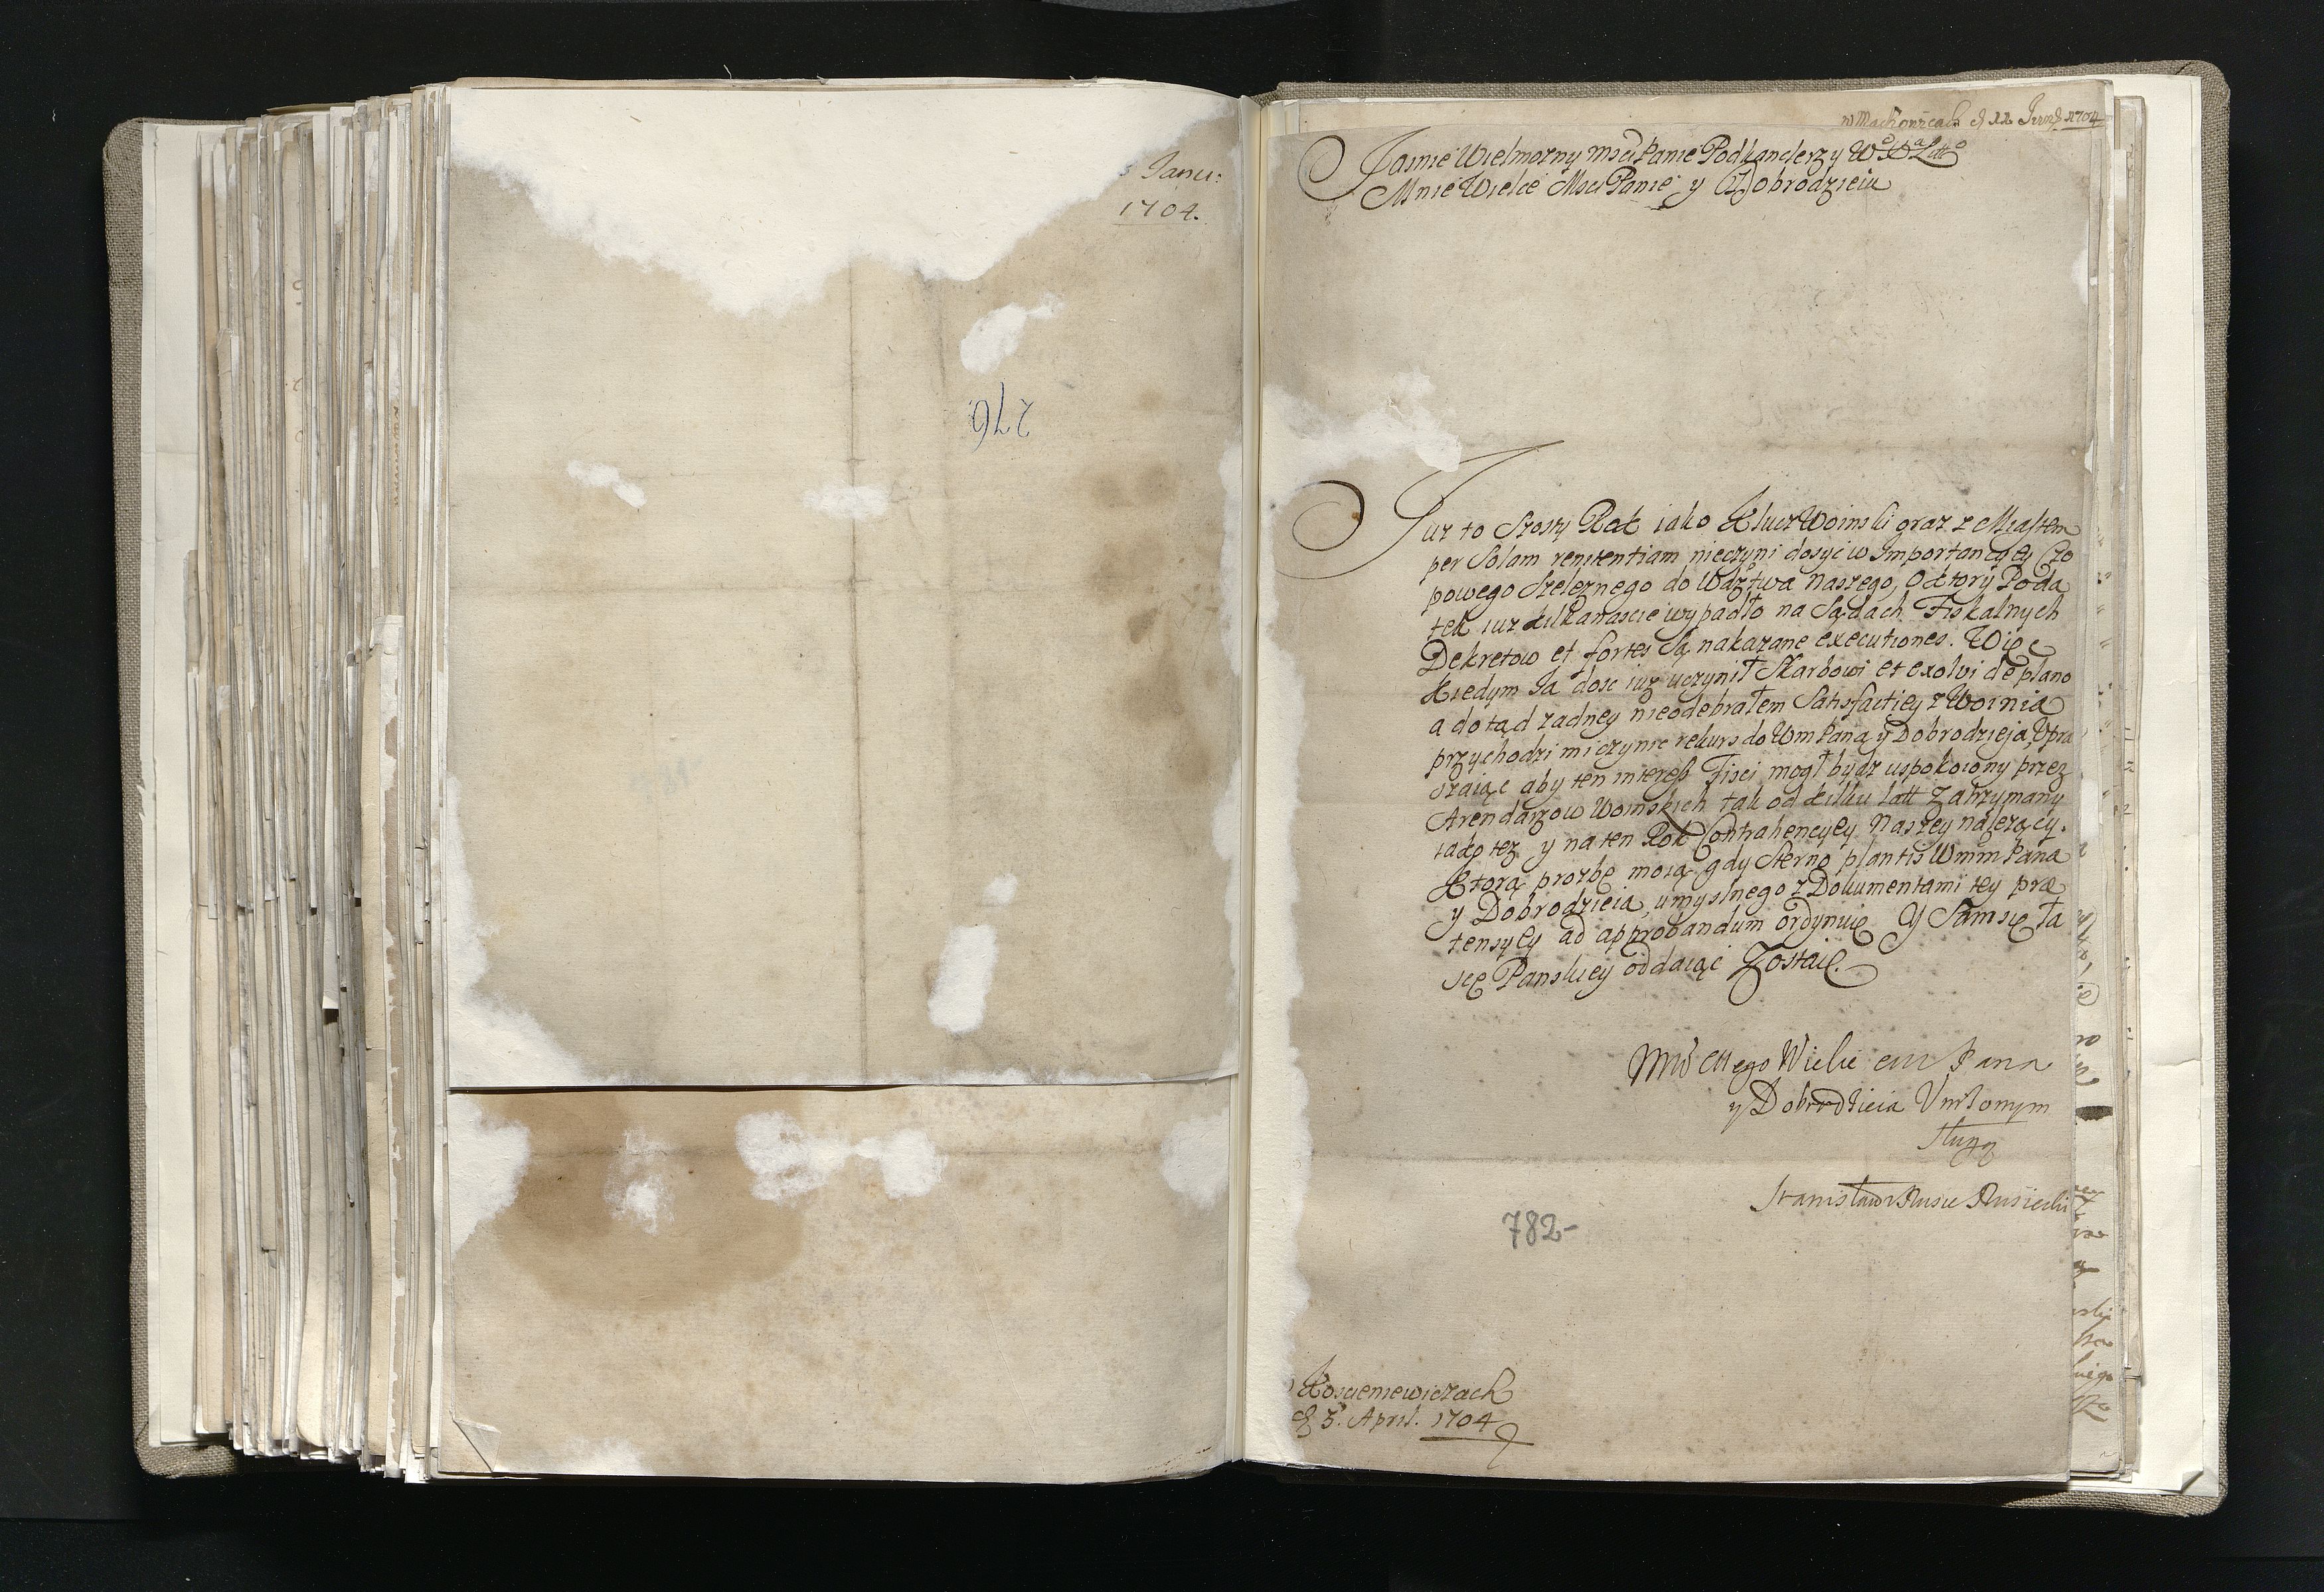 Janu:
1704.
276
w Machowicach d 11 Juny 1704
Jasnie Wielmozny Msci Panie Podkanclerzy W° X° Litt°
Mnie Wielce Msci Panie y Dobrodzieiu
Juz to Szosty Rok iako Klucz Woinski oraz z Miastem
per Solam renitentiam nieczyni dosyć w Importancyey Czo
powego Szelęznego do Wdztwa naszego, o ktory Poda
tek iuz kilkanascie wypadło na Sądach Fiskalnych
Dekretow et fortes Są nakazane executiones. Więc
Kiedym Ja dosc iuz uczynił Skarbowi et exolvi de plano
a dotąd zadney nieodebrałem Satisfactiey z Woinia
przychodzi mi czynic rekurs do Wm Pana y Dobrodzieja, Upra
szaiąc aby ten interess Fisci mogł bydz uspokoiony przez
Arendarzow Woinskich tak od kilku latt Zatrzymany
iako tez y na ten Rok Contrahencyey Naszey nalezący.
Ktorą prozbę moią gdy Sterno plantis Wmm Pana
y Dobrodzieia, umyslnego z Dokumentami tey præ
tensyey ad approbandum ordynuię Y Sam się Ła
sce Panskiey oddaiąc Zostaię.
Mego Wielce Pana
y Dobrodzieia Unizonym
Sługą
Stanisław Rusiecki
782-
Koscieniewiczach
d 3. April. 1704